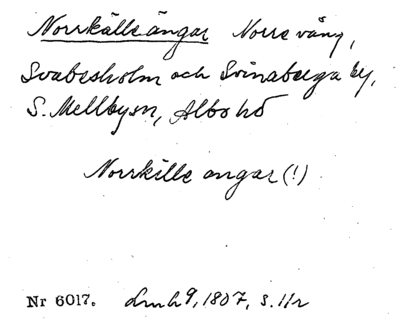 Norrkälle ängar Norre vång,
Svabesholm och Svinaberga by,
S. Mellby sn, Albo hd
Norrkille angar (!)
Nr 6017. Lmh 9, 1807, s. 11r